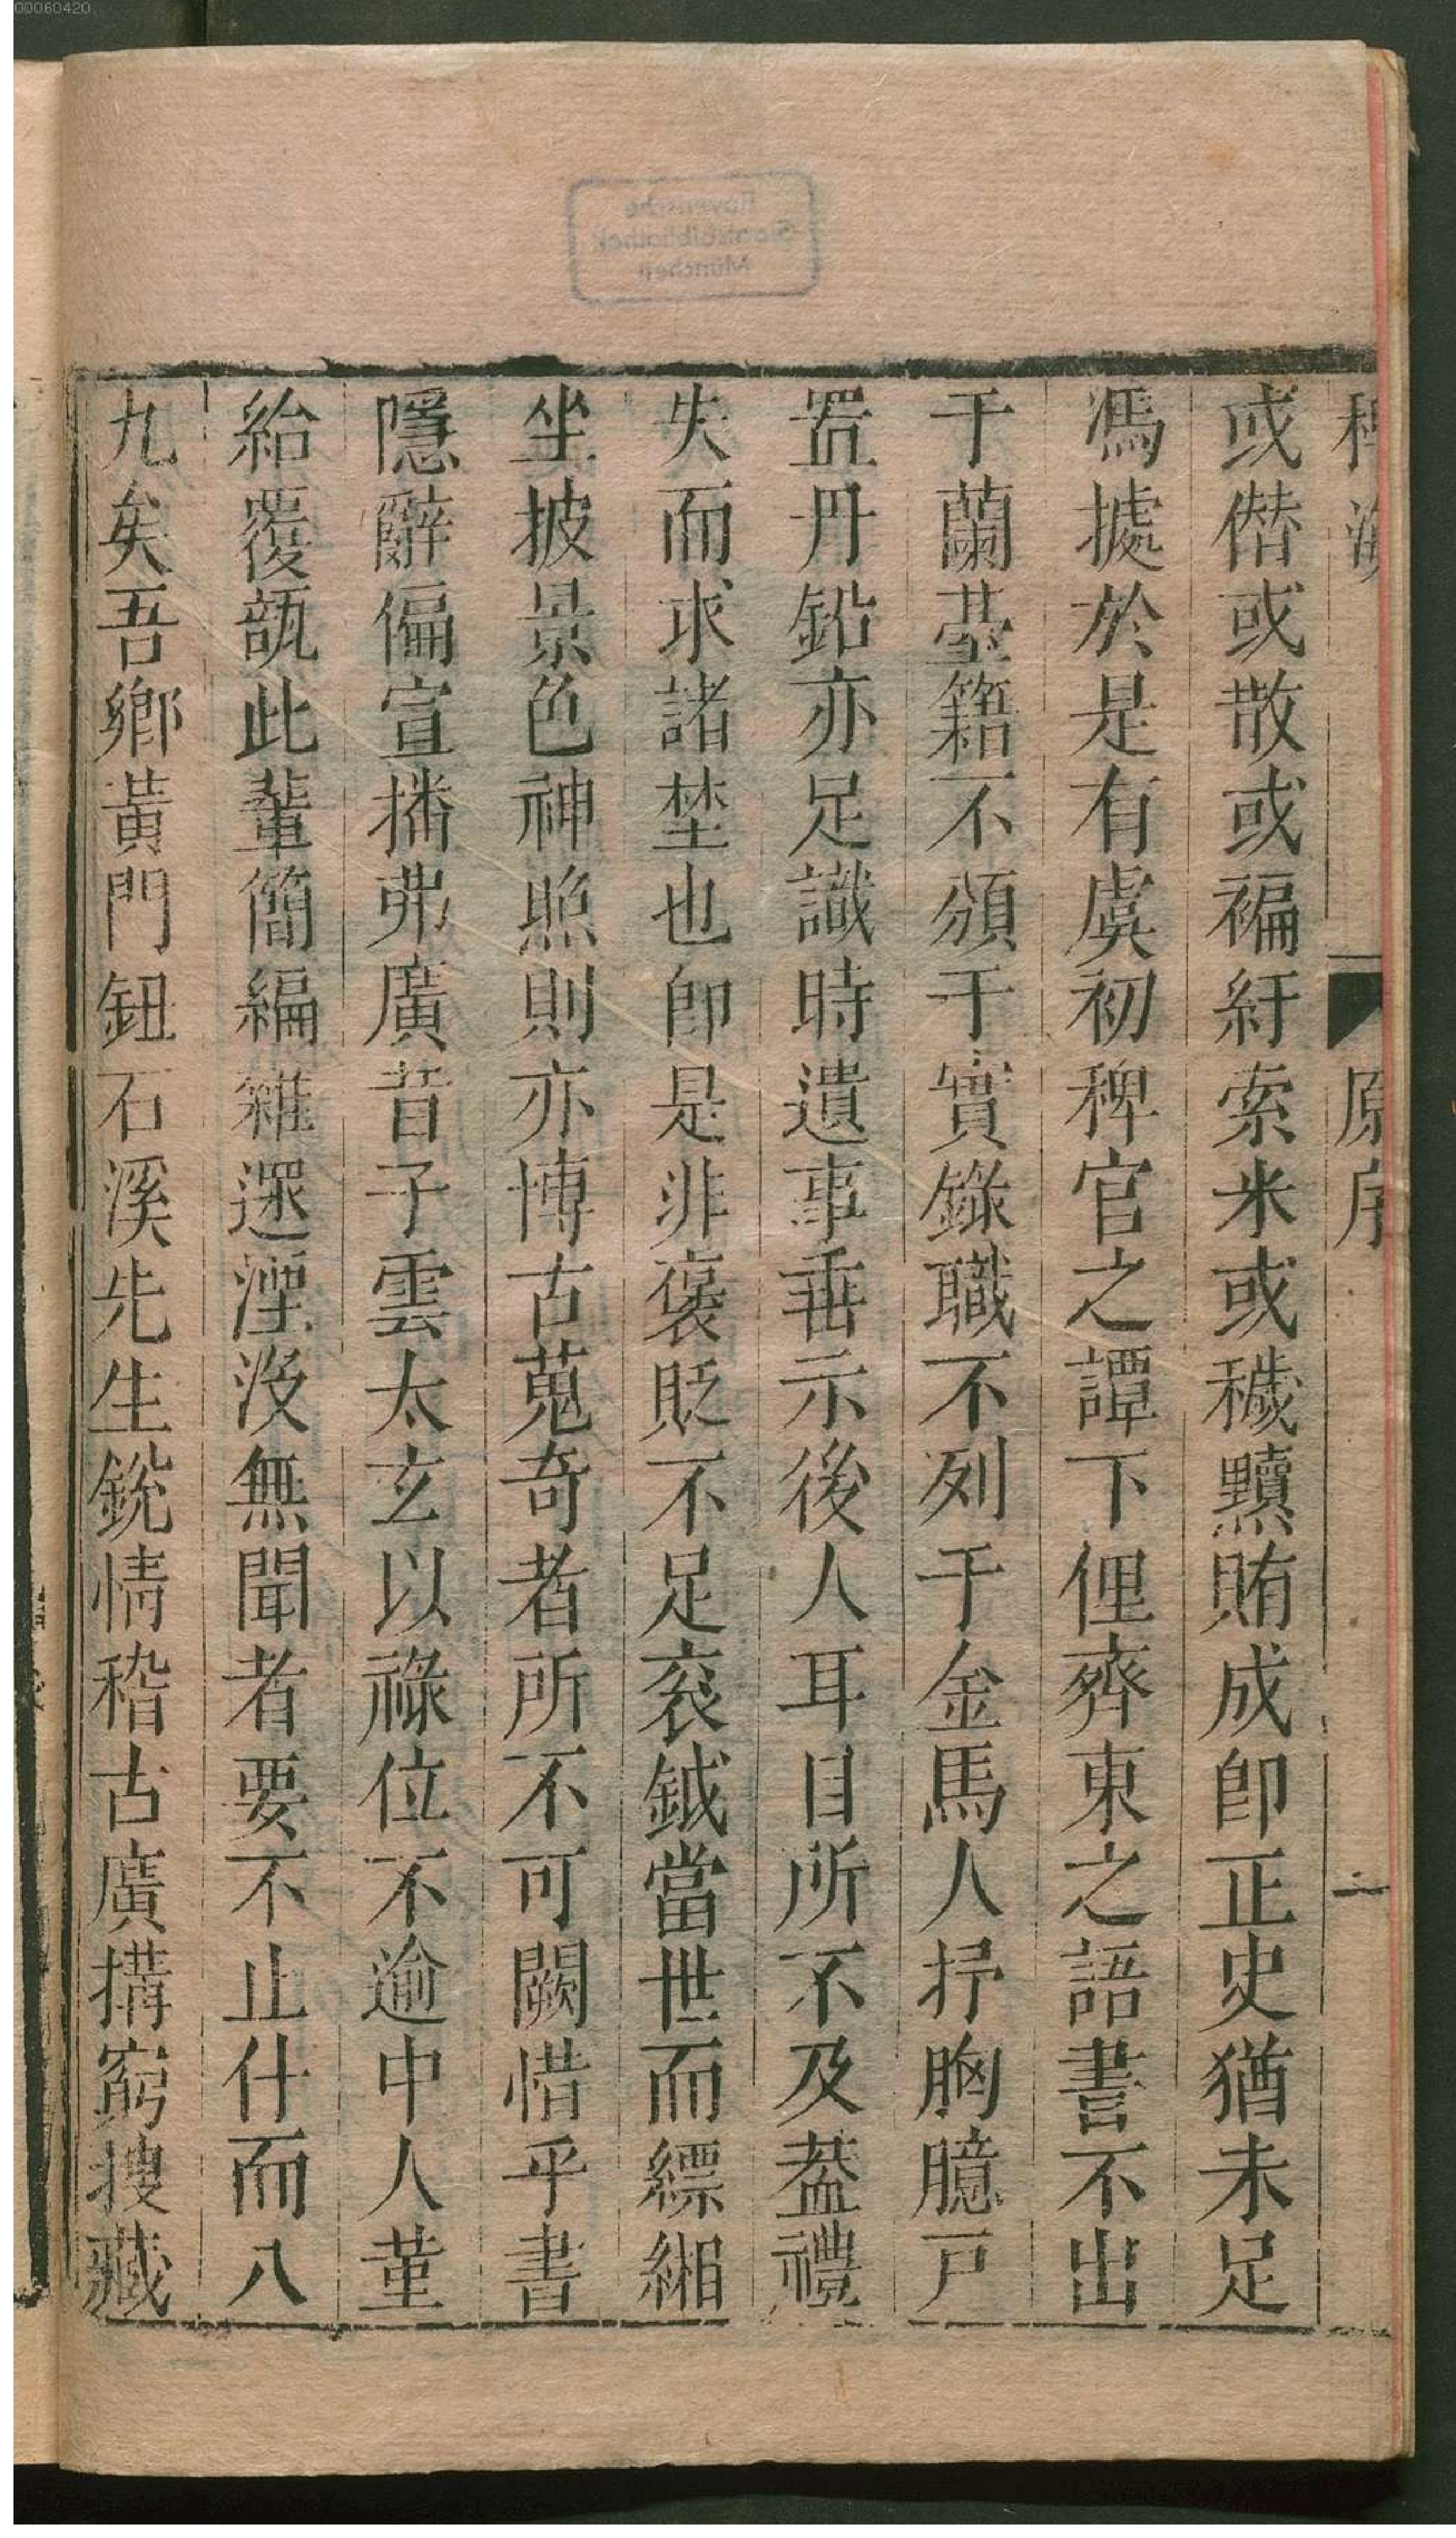 00060420
Bayerische
Staatsbibliothek
München
稗海 原序 一
或僣或散或褊紆索米或穢黷賄成卽正史猶未足
馮㨿於是有虞初稗官之譚下俚齊東之語書不出
于蘭䑓籍不頒于實錄職不列于金馬人抒胸臆戸
置丹鉛亦足識時遺事垂示後人耳目所不及葢禮
失而求諸埜也卽是非褒貶不足衮鉞當世而縹緗
坐披景色神照則亦博古蒐奇者所不可闕惜乎書
隱辭偏宣播弗廣昔子雲太玄以祿位不逾中人菫
給覆瓿此輩簡編雜遝湮沒無聞者要不止什而八
九矣吾鄉黃門鈕石溪先生銳情稽古廣搆窮搜藏